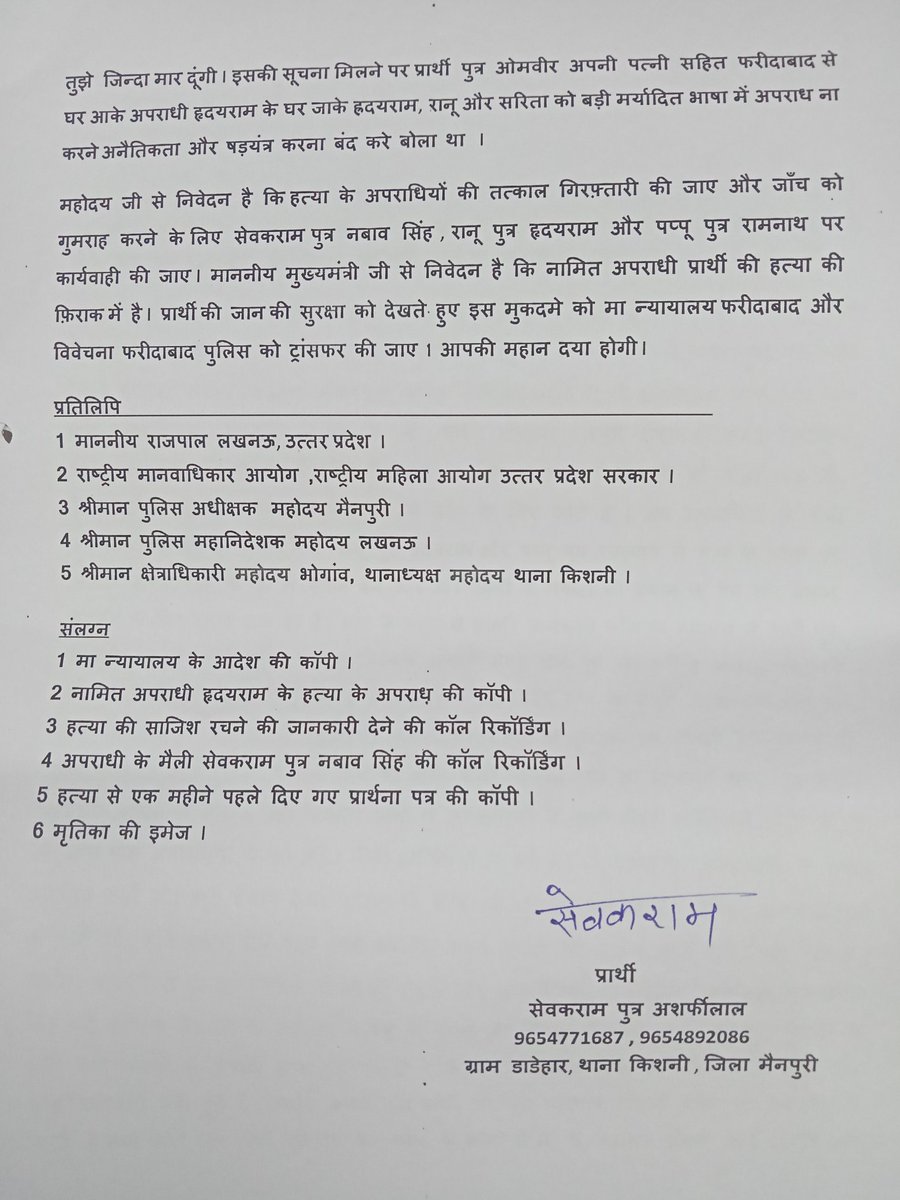 तुझे जिन्दा मार दूंगी। इसकी सूचना मिलने पर प्रार्थी पुत्र ओमवीर अपनी पत्नी सहित फरीदाबाद से
घर आके अपराधी हृदयराम के घर जाके ह्रदयराम, रानू और सरिता को बड़ी मर्यादित भाषा में अपराध ना
करने अनैतिकता और षड़यंत्र करना बंद करे बोला था ।
महोदय जी से निवेदन है कि हत्या के अपराधियों की तत्काल गिरफ़्तारी की जाए और जाँच को
गुमराह करने के लिए सेवकराम पुत्र नबाव सिंह , रानू पुत्र हृदयराम और पप्पू पुत्र रामनाथ पर
कार्यवाही की जाए। माननीय मुख्यमंत्री जी से निवेदन है कि नामित अपराधी प्रार्थी की हत्या की
फ़िराक में है। प्रार्थी की जान की सुरक्षा को देखते हुए इस मुकदमे को मा न्यायालय फरीदाबाद और
विवेचना फरीदाबाद पुलिस को ट्रांसफर की जाए 1 आपकी महान दया होगी।
प्रतिलिपि
1 माननीय राजपाल लखनऊ, उत्तर प्रदेश ।
2 राष्ट्रीय मानवाधिकार आयोग ,राष्ट्रीय महिला आयोग उत्तर प्रदेश सरकार ।
3 श्रीमान पुलिस अधीक्षक महोदय मैनपुरी ।
4 श्रीमान पुलिस महानिदेशक महोदय लखनऊ ।
5 श्रीमान क्षेत्राधिकारी महोदय भोगांव, थानाध्यक्ष महोदय थाना किशनी ।
संलग्न
1 मा न्यायालय के आदेश की कॉपी ।
2 नामित अपराधी हृदयराम के हत्या के अपराध़ की कॉपी ।
3 हत्या की साजिश रचने की जानकारी देने की कॉल रिकॉर्डिंग ।
4 अपराधी के मैली सेवकराम पुत्र नबाव सिंह की कॉल रिकॉर्डिंग ।
5 हत्या से एक महीने पहले दिए गए प्रार्थना पत्र की कॉपी ।
6 मृतिका की इमेज ।
सेवकराम
प्रार्थी
सेवकराम पुत्र अशर्फीलाल
9654771687 , 9654892086
ग्राम डाडेहार, थाना किशनी , जिला मैनपुरी